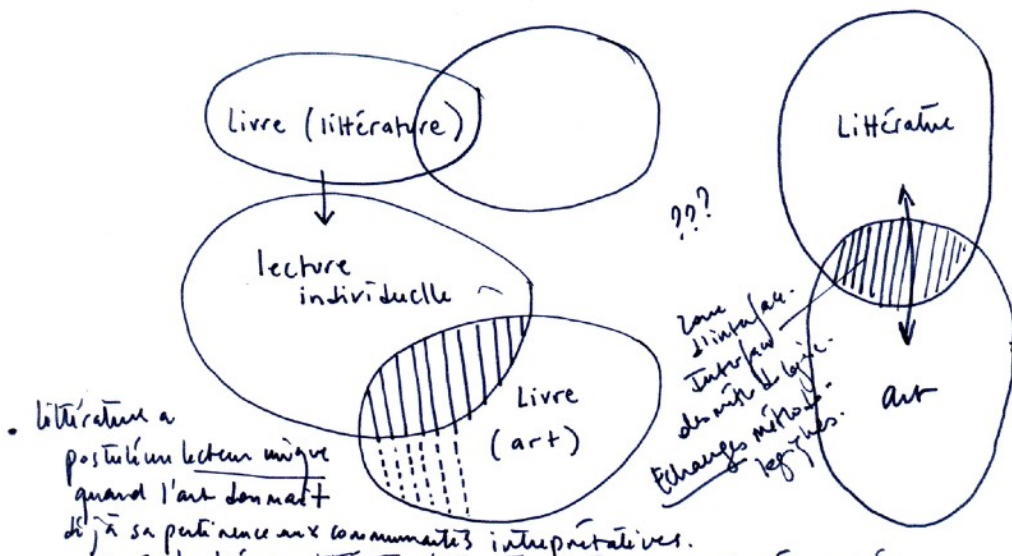 Livre (littérature)
Littérature
lecture
individuelle
???
zone
d'interface.
Interface
Échanges méthodo-
logiques.
Livre
(art)
art
• littérature a
postulé un lecteur unique
quand l'art donnait
déjà sa pertinence aux communautés interprétatives.